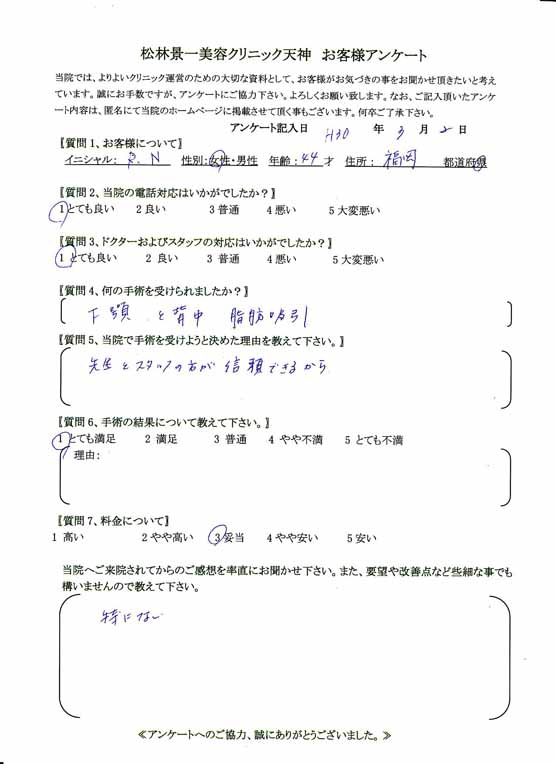 松林景一美容クリニック天神 お客様アンケート
当院では、よりよいクリニック運営のための大切な資料として、お客様がお気づきの事をお聞かせ頂きたいと考え
ています。誠にお手数ですが、アンケートにご協力下さい。よろしくお願い致します。なお、ご記入頂いたアンケ
ート内容は、匿名にて当院のホームページに掲載させて頂く事もございます。何卒ご了承下さい。
アンケート記入日 H30 年 3 月 2 日
【質問1、お客様について】
イニシャル: N 性別:女性・男性 年齢:44才 住所: 福岡 都道府県
【質問2、当院の電話対応はいかがでしたか?】
1とても良い 2良い 3普通 4悪い 5大変悪い
【質問3、ドクターおよびスタッフの対応はいかがでしたか?】
1とても良い 2 良い 3 普通 4悪い 5大変悪い
【質問4、何の手術を受けられましたか?】
下顎 と背中 脂肪吸引
【質問5、当院で手術を受けようと決めた理由を教えて下さい。】
先生とスタッフの方が信頼できるから
【質問6、手術の結果について教えて下さい。】
1とても満足 2 満足 3 普通 4 やや不満 5 とても不満
理由:
【質問7、料金について】
1 高い 2やや高い 3妥当 4やや安い 5安い
当院へご来院されてからのご感想を率直にお聞かせ下さい。また、要望や改善点など些細な事でも
構いませんので教えて下さい。
特にない
≪アンケートへのご協力、誠にありがとうございました。≫